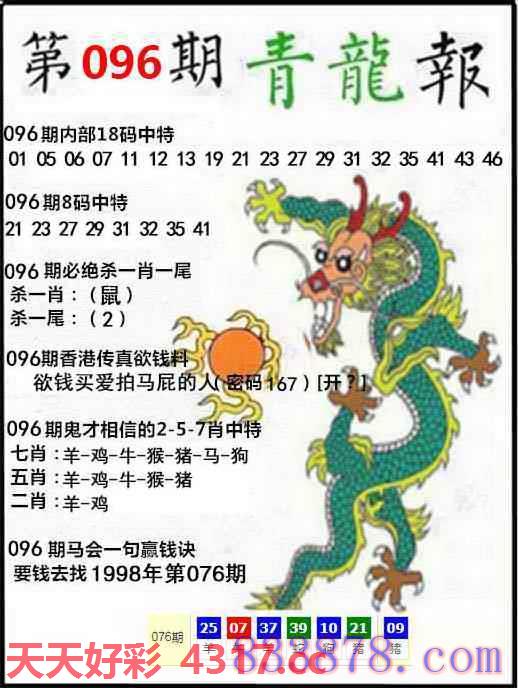 第096期 青龍報
096期内部18码中特
01 05 06 07 11 12 13 19 21 23 27 29 31 32 35 41 43 46
096期8码中特
21 23 27 29 31 32 35 41
096 期必绝杀一肖一尾
杀一肖：（鼠）
杀一尾：（2）
096期香港传真欲钱料
欲钱买爱拍马屁的人(密码167)[开？]
096期鬼才相信的2-5-7肖中特
七肖：羊-鸡-牛-猴-猪-马-狗
五肖：羊-鸡-牛-猴-猪
二肖：羊-鸡
096 期马会一句赢钱诀
要钱去找1998年第076期
076期 25 07 37 39 10 21 09
天天好彩 4317.cc